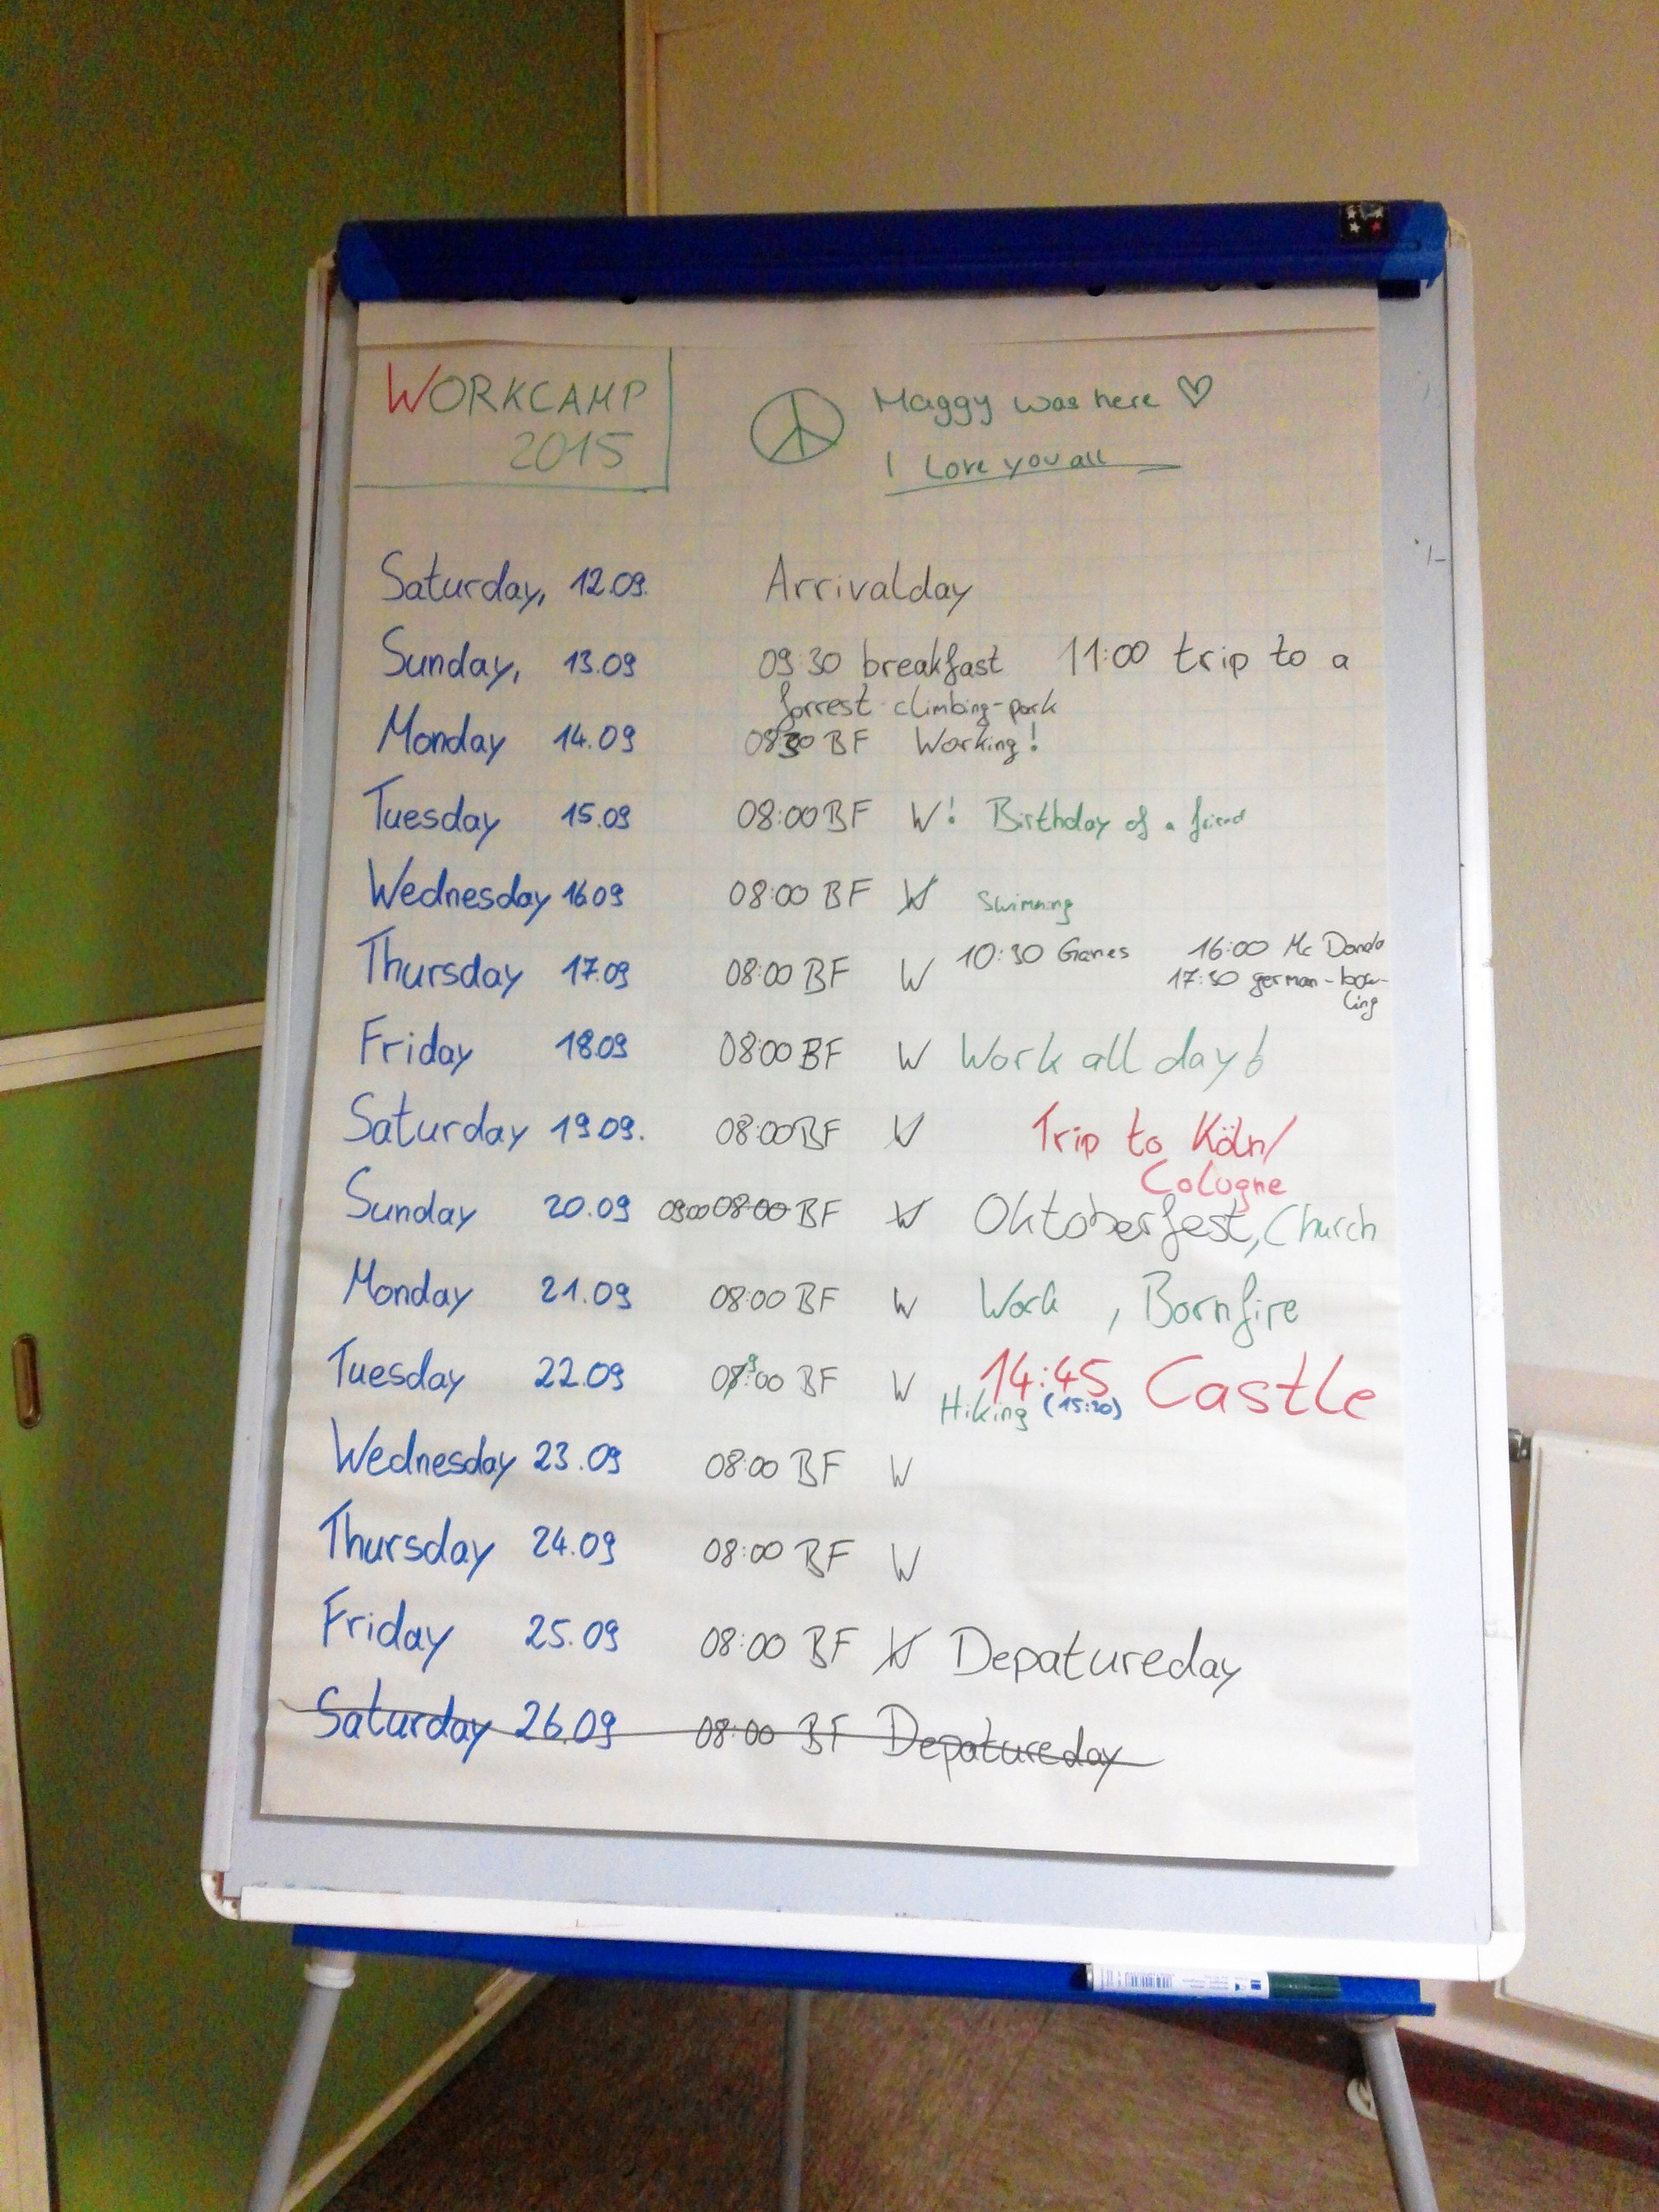 WORKCAMP
2015
Maggy was here ♡
I Love you all
Saturday, 12.09. Arrivalday
Sunday, 13.09 09:30 breakfast 11:00 trip to a
forrest climbing-park
Monday 14.09 08:30 BF Working!
Tuesday 15.09 08:00 BF W! Birthday of a friend
Wednesday 16.09 08:00 BF W Swimming
Thursday 17.09 08:00 BF W 10:30 Games 16:00 Mc Donalds
17:30 german-bow-
ling
Friday 18.09 08:00 BF W Work all day
Saturday 19.09. 08:00 BF W Trip to Köln/
Cologne
Sunday 20.09 09:00 08:00 BF W Oktoberfest, Church
Monday 21.09 08:00 BF W Work , Bornfire
Tuesday 22.09 09:00 BF W 14:45 Castle
Hiking (15:30)
Wednesday 23.09 08:00 BF W
Thursday 24.09 08:00 BF W
Friday 25.09 08:00 BF W Depatureday
Saturday 26.09 08:00 BF Depatureday